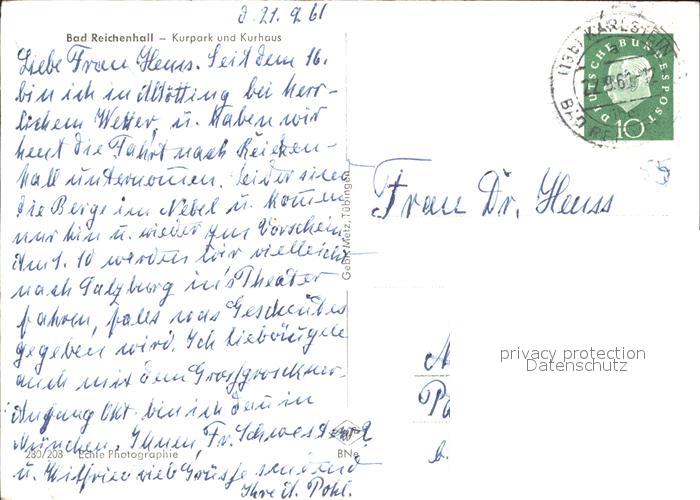 d. 21. 9. 61
Bad Reichenhall – Kurpark und Kurhaus
Liebe Frau Heuss. Seit dem 16.
bin ich in Altötting bei herr-
lichem Wetter, u. haben wir
heut die Fahrt nach Reichen-
hall unternomen. Leider sind
die Berge im Nebel u. komen
nur hin u. wieder zum Vorschein
Am 1. 10 werden wir vielleicht
nach Salzburg in's Theater
fahren, falls was Gescheites
gegeben wird. Ich liebäugele
auch mit dem Grossglockner.
Anfang Okt. bin ich dan in
München. Ihnen, Fr. Schwester
u. Wilfried viele Grüsse sendend
Ihre A. Pohl.
280/208 Echte Photographie BNe
Gebr. Metz, Tübingen
(13b) KARLSTEIN
BAD REI
DEUTSCHE BUNDESPOST
10
55
Frau Dr. Heuss
privacy protection
Datenschutz